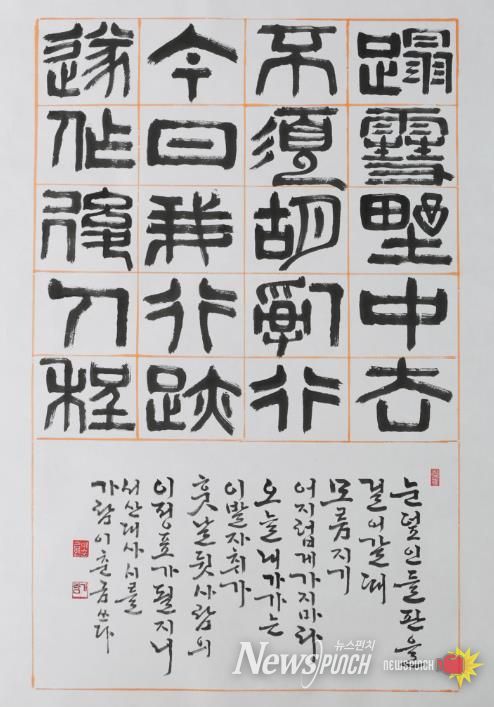 蹋雪野中去
不須胡亂行
今日我行跡
遂作後人程
눈덮인 들판을
걸어갈 때
모름지기
어지럽게 가지 마라
오늘 내가 가는
이 발자취가
훗날 뒷사람의
이정표가 될지니
서산대사 시를
가람 이춘금 쓰다
뉴스펀치
NewsPUNCH
NEWSPUNCH